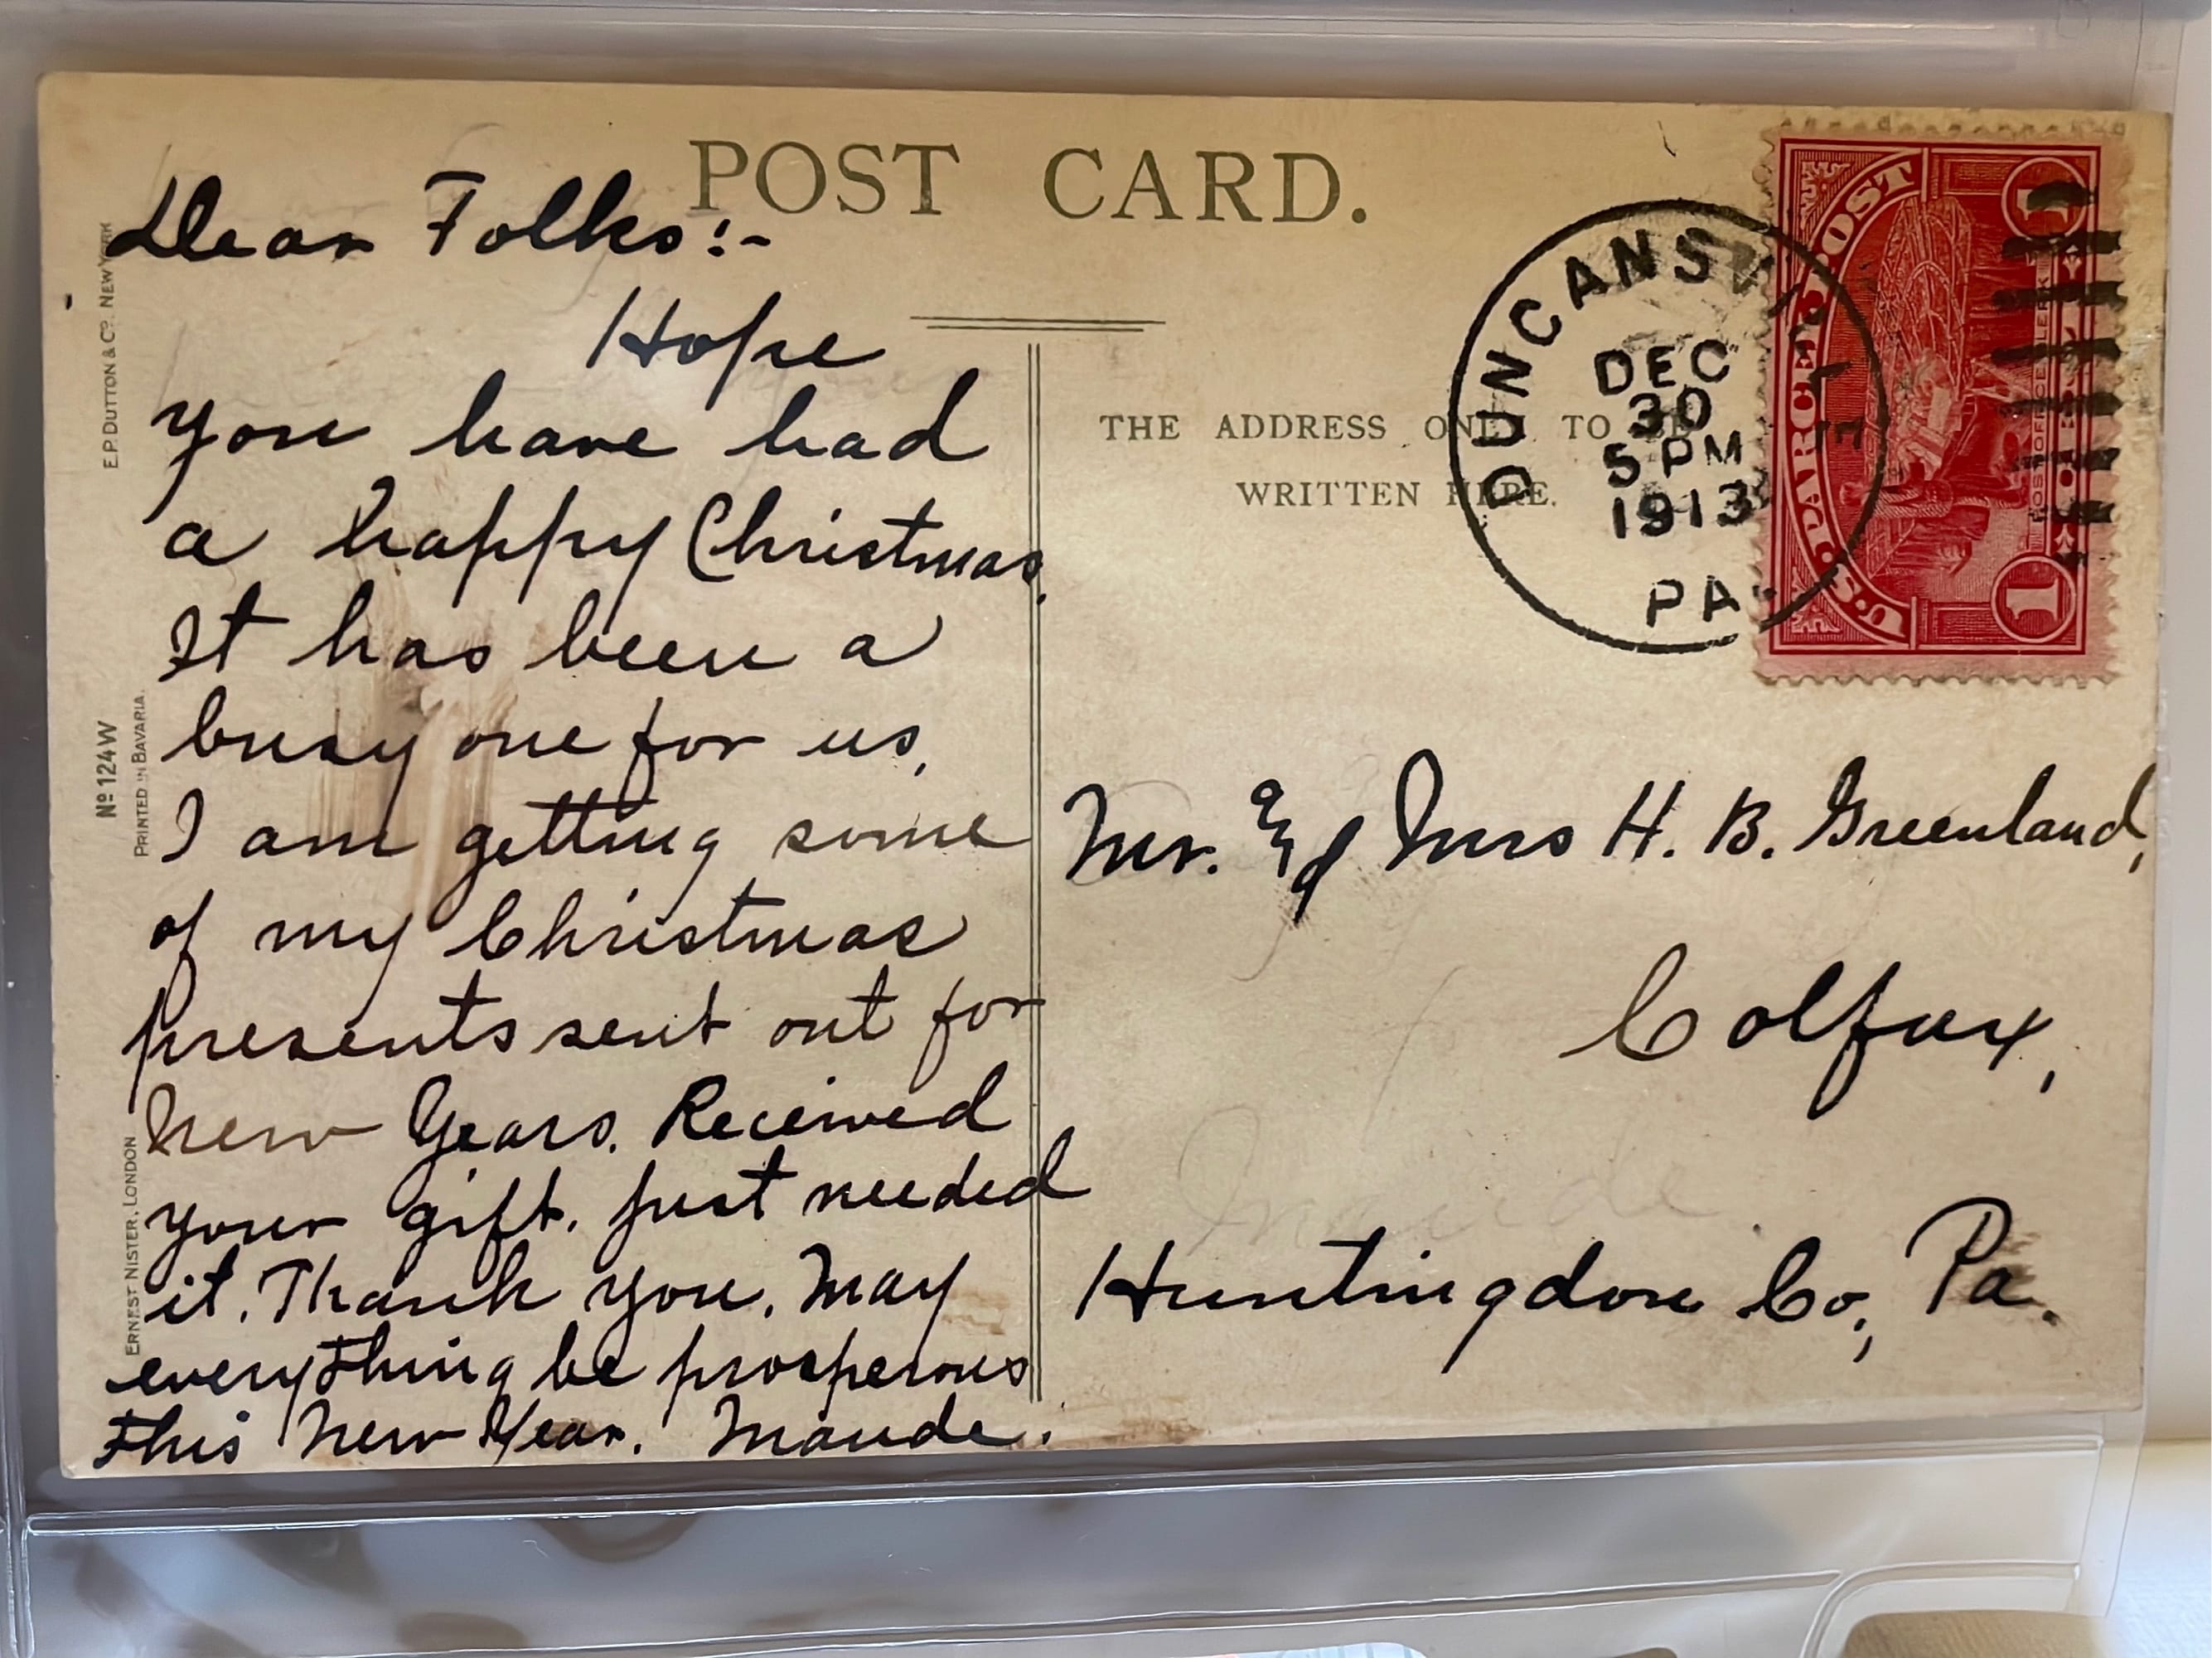 POST CARD.
Dear Folks:-
Hope
you have had
a happy Christmas.
It has been a
busy one for us.
I am getting some
of my Christmas
presents sent out for
New Years. Received
your gift. Just needed
it. Thank you. May
everything be prosperous
this New Year. Maude.
E.P. DUTTON & Co. NEW YORK
No 124 W
PRINTED IN BAVARIA.
ERNEST NISTER, LONDON
THE ADDRESS ONLY TO BE
WRITTEN HERE.
DUNCANSVILLE
DEC
30
5 PM
1913
PA.
U.S. PARCEL POST
POST OFFICE CLERK
1
1
Mr. and Mrs H. B. Greenland,
Colfax,
Maude
Huntingdon Co., Pa.